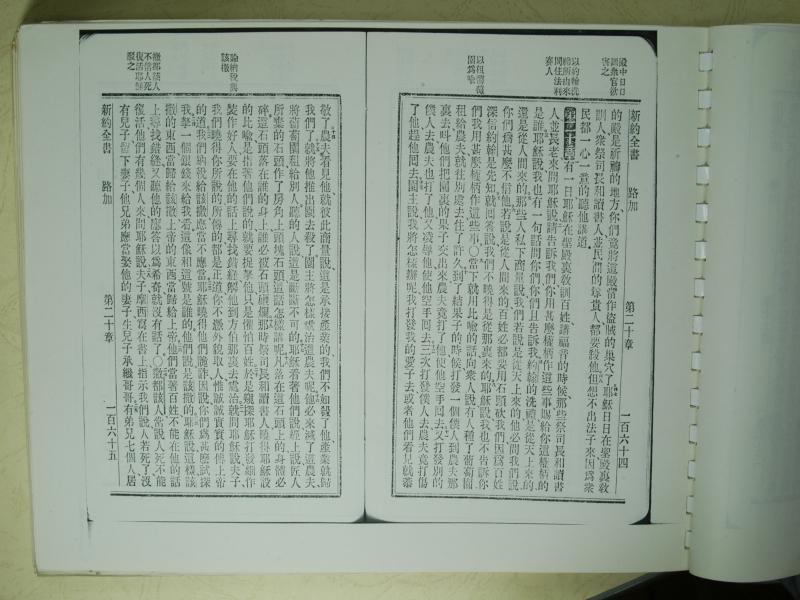 殿中日日
訓衆官欲
害之
以約翰洗
禮所由來
問住法利
賽人
以租葡萄
園爲喻
新約全書 路加 第二十章 二百六十四
的殿是祈禱的地方你們竟將這殿當作盜賊的巢穴了耶穌日日在聖殿裏敎
訓人衆祭司長和讀書人並民間的尊貴人都要殺他但想不出法子來因爲衆
民都一心一意的聽他講道
第二十章有一日耶穌在聖殿裏敎訓百姓講福音的時候那些祭司長和讀書
人並長老來問耶穌說請告訴我們你用甚麼權柄作這些事賜給你這權柄的
是誰耶穌說我也有一句話問你們你們且告訴我約翰的洗禮是從天上來的
還是從人間來的那些人私下商量說我們若說是從天上來的他必問我們說
你們爲甚麼不信他若說是從人間來的百姓必都要用石頭砍我們因爲百姓
深信約翰是先知就回答說我們不曉得是從那裏來的耶穌說我也不告訴你
們我用甚麼權柄作這些事○當下就用比喻的話向衆人說有人種了葡萄園
租給農夫就往別處去住了許久到了結果子的時候打發一個僕人到農夫那
裏去叫他們把園裏的果子交出來農夫竟打了他使他空手回去又打發別的
僕人去農夫也打了他又凌辱他使他空手回去三次打發僕人去農夫竟打傷
了他趕他回去園主說我將怎樣辦呢我打發我的愛子去或者他們看見就恭
論納稅與
該撒
撒都該人
不信人死
復活耶穌
駁之
敬了農夫看見他就彼此商量說這是承接產業的我們不如殺了他產業就歸
我們了就將他推出園去殺了園主將怎樣處治這農夫呢他必來滅了這農夫
將葡萄園租給別人聽的人說這是斷斷不可的耶穌看著他們說經上說匠人
所棄的石頭作了房角上頭塊石頭這話怎樣講呢凡落在這石頭上的身體必
碎這石頭落在誰的身上誰必被石頭砸爛那時祭司長和讀書人曉得耶穌設
的比喻是指著他們說的就要捉拏他只是懼怕百姓於是窺探耶穌打發細作
裝作好人要在他的話上尋找錯縫解他到方伯那裏去處治就問耶穌說夫子
我們曉得你所說的所傳的都是正道你不憑外貌取人惟誠誠實實的傳上帝
的道我們納稅給該撒應當不應當耶穌曉得他們詭詐因說你們爲甚麼試探
我拏一個銀錢來給我看這像和這號是誰的他們說是該撒的耶穌說這樣該
撒的東西當歸給該撒上帝的東西當歸給上帝他們當著百姓不能在他的話
上尋找錯縫又聽他的應答以爲希奇就沒有話了○撒都該人常說人死不能
復活他們有幾個人來問耶穌說夫子摩西寫在書上指示我們說人若死了沒
有兒子留下妻子他兄弟應當娶他的妻子生兒子承繼哥哥有弟兄七個人居
新約全書 路加 第二十章 二百六十五